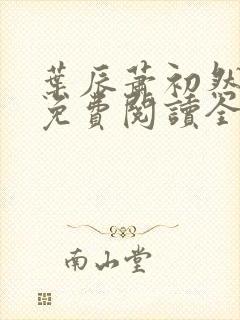 葉辰蕭初然
免費閱讀全
南山堂